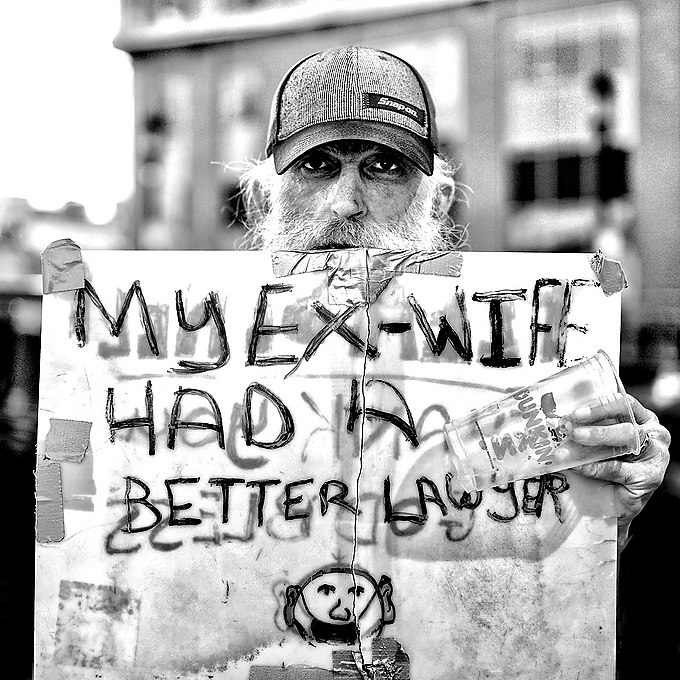 Snap-on
MY EX-WIFE
HAD A
BETTER LAWYER
DUNKIN'